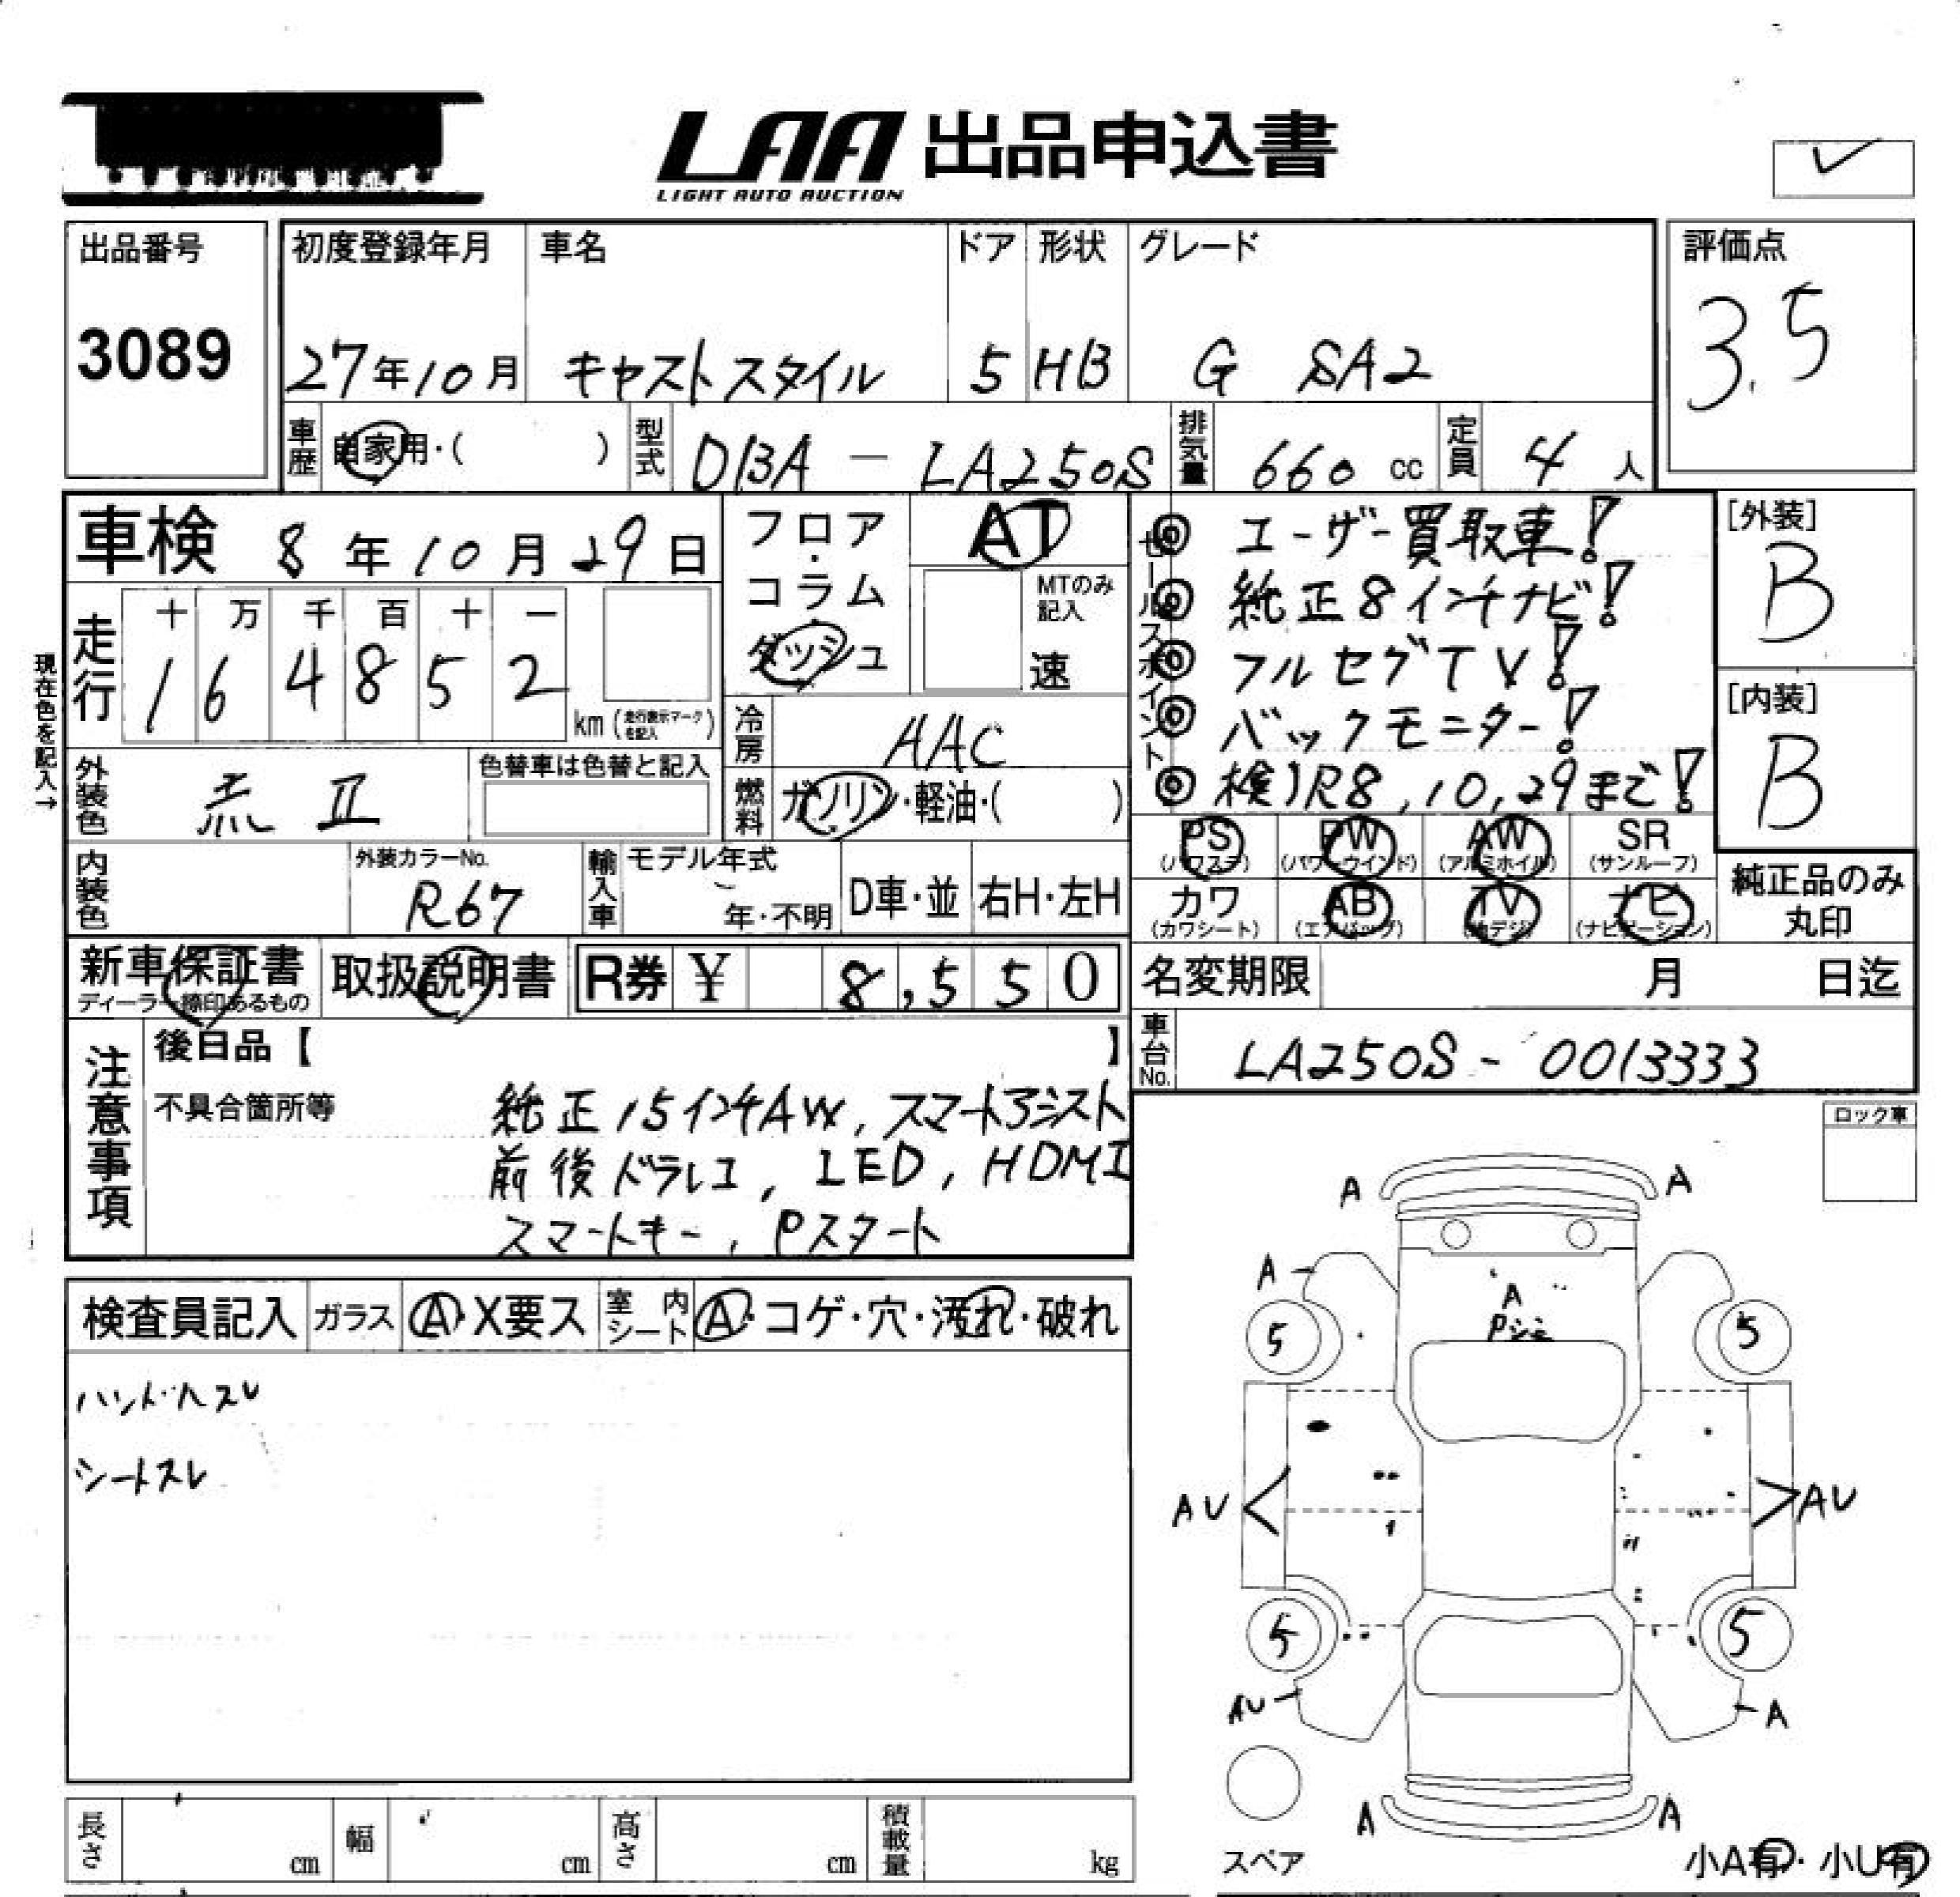 LAA 出品申込書
LIGHT AUTO AUCTION
出品番号
3089
初度登録年月
27年10月
車名
キャストスタイル
ドア
5
形状
HB
グレード
G SA2
評価点
3.5
車歴 自家用・( )
型式 DBA - LA250S
排気量 660 cc
定員 4 人
車検 8年10月29日
フロア・コラム ダッシュ
AT
MTのみ記入
速
セールスポイント
◎ エーザー買取車!
◎ 純正8インチナビ!
◎ フルセグTV!
◎ バックモニター!
◎ 検)R8,10,29まで!
[外装]
B
[内装]
B
現在色を記入→
走行
十 万 千 百 十 一
1 6 4 8 5 2
km (走行表示マークを記入)
冷房 AAC
外装色
Ⅱ
色替車は色替と記入
燃料 ガソリン・軽油・( )
PS (パワステ)
PW (パワーウインド)
AW (アルミホイル)
SR (サンルーフ)
カワ (カワシート)
AB (エアバッグ)
TV (地デジ)
ナビ (ナビゲーション)
純正品のみ丸印
内装色
外装カラーNo.
R67
輸入車
モデル年式
年・不明
D車・並
右H・左H
新車保証書
ディーラー捺印あるもの
取扱説明書
R券 ¥ 8,550
名変期限 月 日迄
車台No. LA250S - 0013333
注意事項
後日品【 】
不具合箇所等
純正15インチAW, スマートアシスト
前後ドラレコ, LED, HDMI
スマートキー, Pスタート
ロック車
検査員記入
ガラス A・X要ス
室内シート A・コゲ・穴・汚れ・破れ
ハンドルスレ
シートスレ
A A
A
A
5 5
AU AU
5 5
AU A
A A
スペア
小A有・小U有
長さ cm
幅 cm
高さ cm
積載量 kg